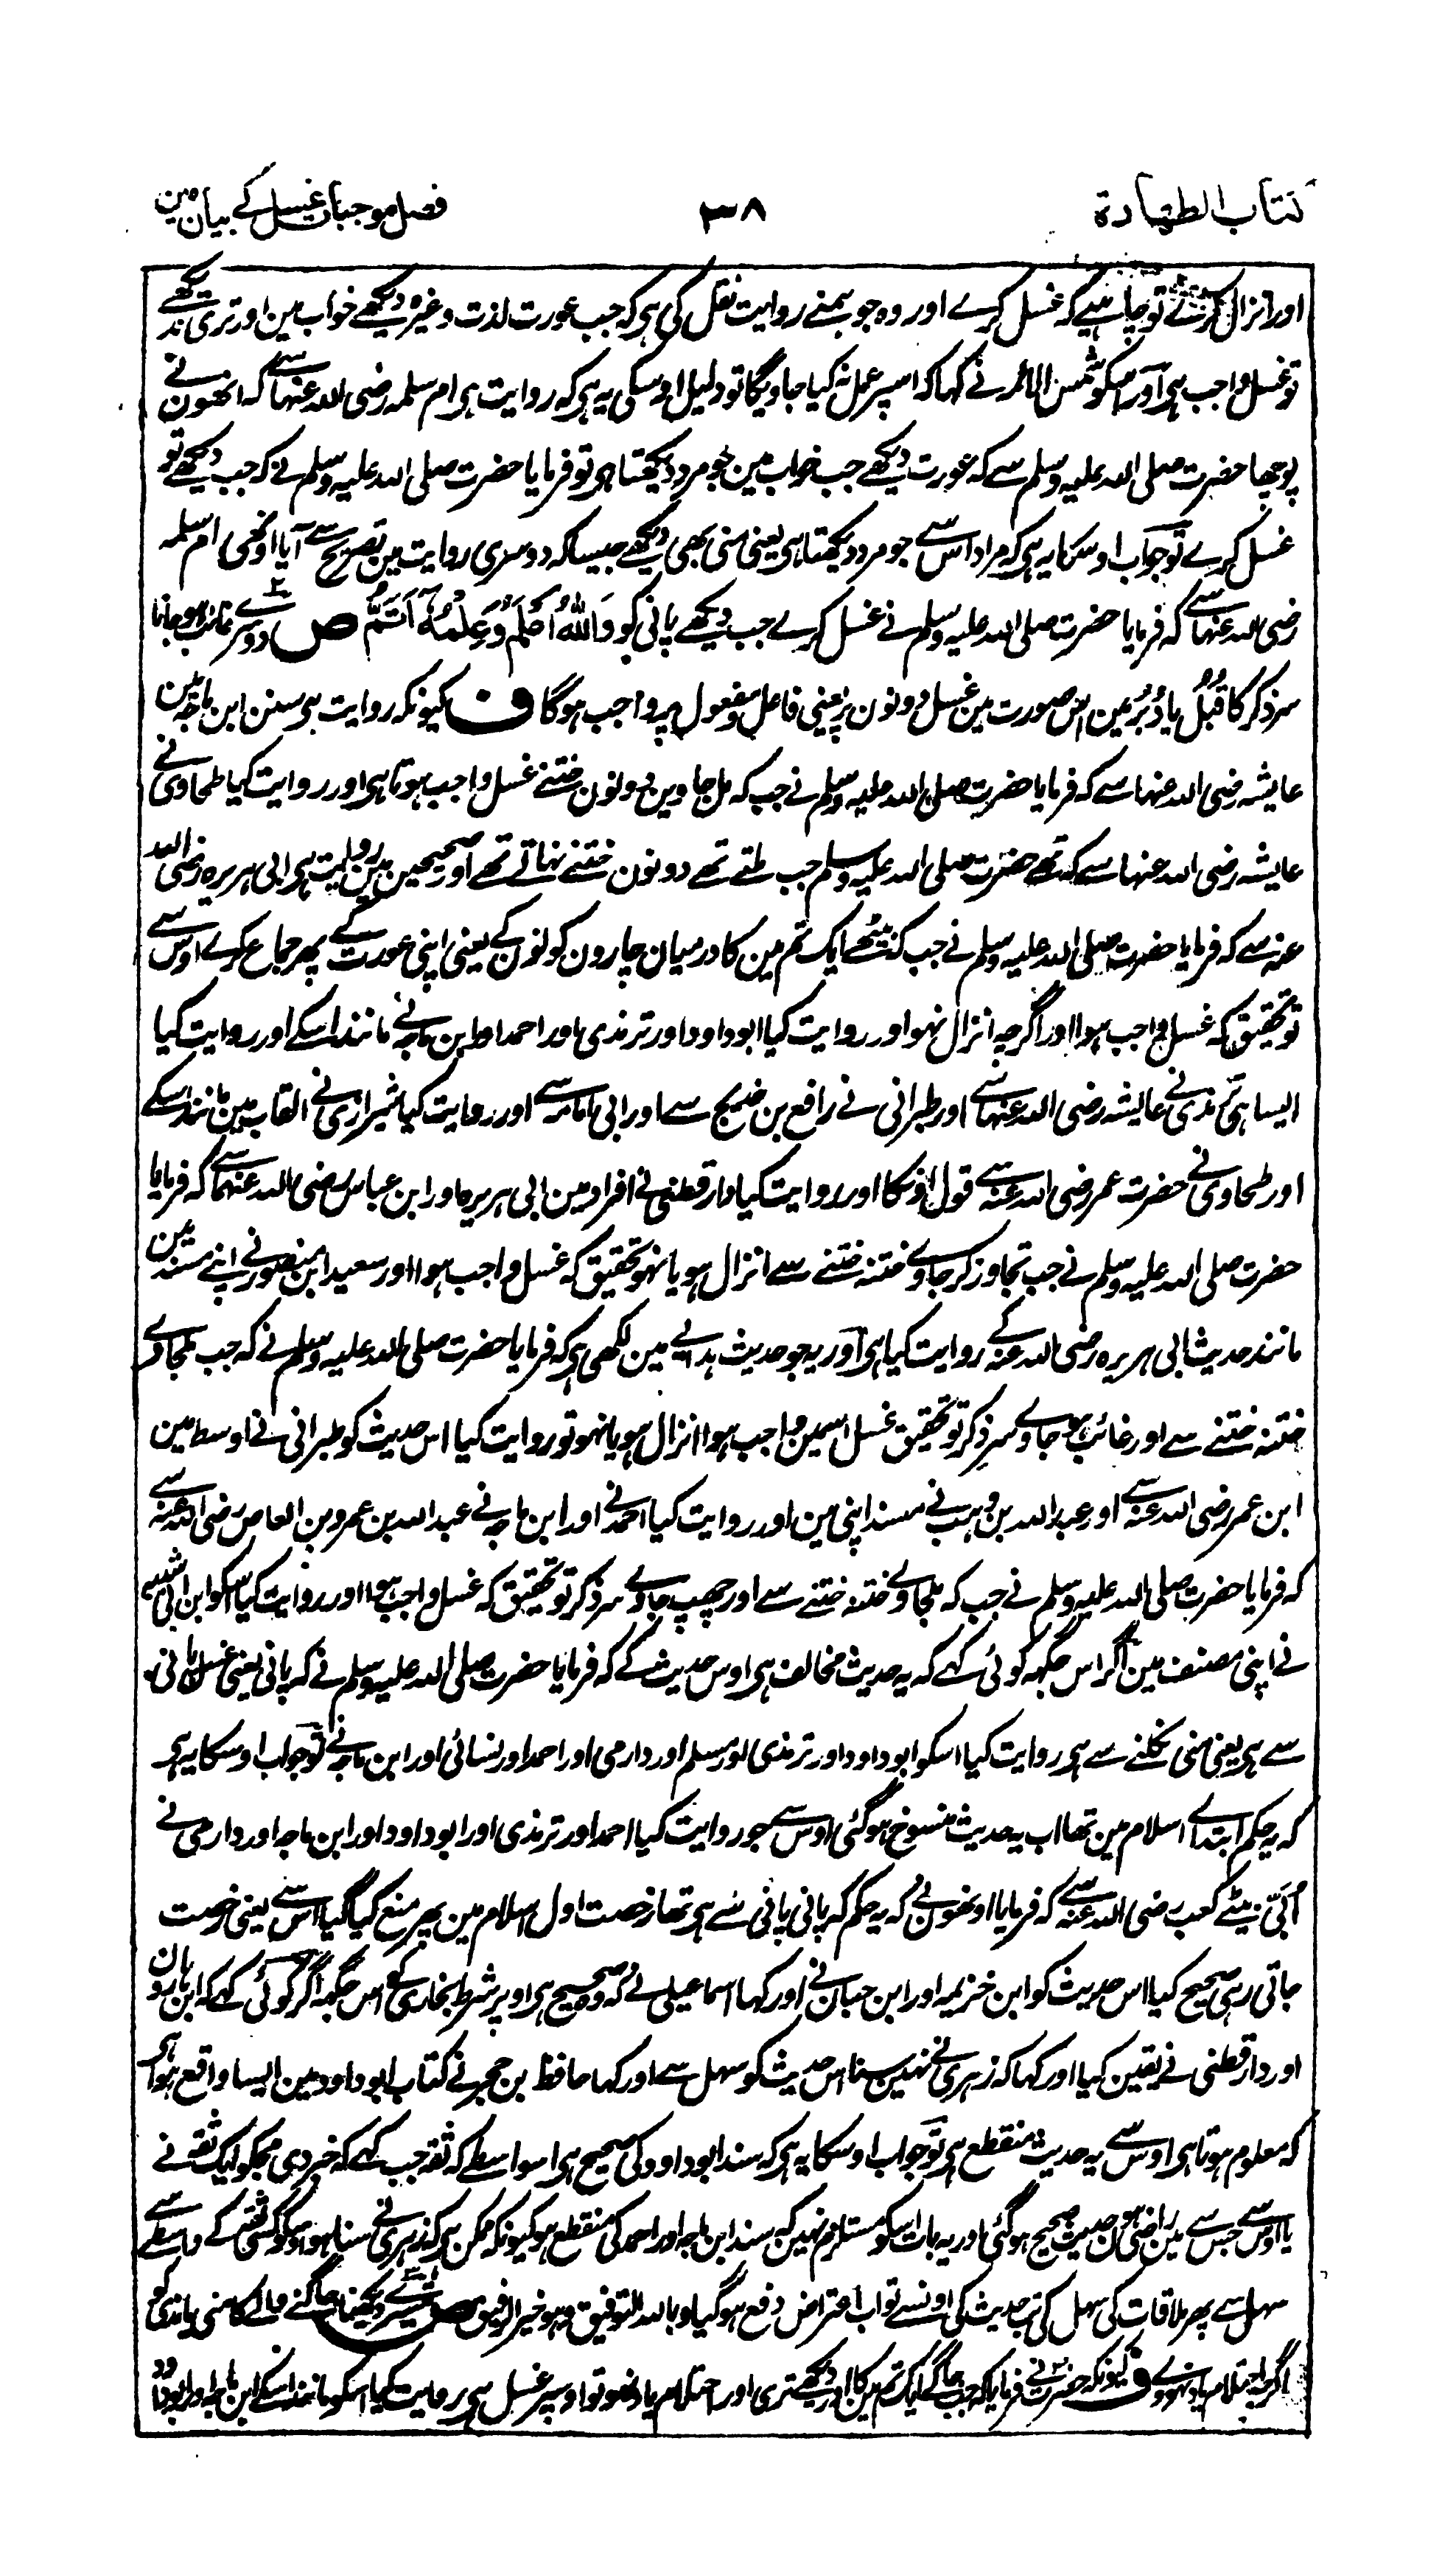 کتاب الطهارة
۳۸
فصل موجبات غسل کے بیان مین
اور انزال کرے تو چاہیے کہ غسل کرے اور وہ جو ہمنے روایت نقل کی ہی کہ جب عورت لذت وغیرہ دیکھے خواب مین اور تری ندیکھے
تو غسل واجب ہی اور اسکو شمس الائمہ نے کہا کہ اسپر عمل نہ کیا جاویگا تو دلیل اوسکی یہ ہی کہ روایت ہی ام سلمہ رضی اللہ عنہا سے کہ انھون نے
پوچھا حضرت صلی اللہ علیہ وسلم سے کہ عورت دیکھے جب خواب مین جو مرد دیکھتا ہی تو فرمایا حضرت صلی اللہ علیہ وسلم نے کہ جب دیکھے تو
غسل کرے تو جواب اوسکا یہ ہی کہ مراد اس سے جو مرد دیکھتا ہی یعنی منی بھی دیکھے جیسا کہ دوسری روایت مین تصریح سے آیا اونھی ام سلمہ
رضی اللہ عنہا سے کہ فرمایا حضرت صلی اللہ علیہ وسلم نے غسل کرے جب دیکھے پانی کو وَاللّٰهُ اَعْلَمُ وَعِلْمُهٗ اَتَمُّ ص دوسرے غائب ہوجانا
سر ذکر کا قُبُل یا دُبُر مین اس صورت مین غسل دونون پر یعنی فاعل و مفعول پر واجب ہوگا ف کیونکہ روایت ہی سنن ابن ماجہ مین
عایشہ رضی اللہ عنہا سے کہ فرمایا حضرت صلی اللہ علیہ وسلم نے جب کہ مل جاوین دونون ختنے غسل واجب ہوتا ہی اور روایت کیا طحاوی نے
عایشہ رضی اللہ عنہا سے کہ تھے حضرت صلی اللہ علیہ وسلم جب ملتے تھے دونون ختنے نہاتے تھے اور صحیحین مین روایت ہی ابی ہریرہ رضی اللہ
عنہ سے کہ فرمایا حضرت صلی اللہ علیہ وسلم نے جب کہ بیٹھے ایک تم مین کا درمیان چارون کونون کے یعنی اپنی عورت کے پھر جماع کرے اوس سے
تو تحقیق کہ غسل واجب ہوا اور اگرچہ انزال نہو اور روایت کیا ابوداود اور ترمذی اور احمد اور ابن ماجہ نے مانند اسکے اور روایت کیا
ایسا ہی ترمذی نے عایشہ رضی اللہ عنہا سے اور طبرانی نے رافع بن خدیج سے اور ابی امامہ سے اور روایت کیا شیرازی نے القاب مین مانند اسکے
اور طحاوی نے حضرت عمر رضی اللہ عنہ سے قول اونکا اور روایت کیا دارقطنی نے افراد مین ابی ہریرہ اور ابن عباس رضی اللہ عنہما سے کہ فرمایا
حضرت صلی اللہ علیہ وسلم نے جب تجاوز کر جاوے ختنہ ختنے سے انزال ہو یا نہو تحقیق کہ غسل واجب ہوا اور سعید ابن منصور نے اپنے مسند مین
مانند حدیث ابی ہریرہ رضی اللہ عنہ کے روایت کیا ہی اور یہ جو حدیث ہدایے مین لکھی ہی کہ فرمایا حضرت صلی اللہ علیہ وسلم نے کہ جب ملجاوے
ختنہ ختنے سے اور غائب ہو جاوے سر ذکر تو تحقیق غسل اسمین واجب ہوا انزال ہو یا نہو تو روایت کیا اس حدیث کو طبرانی نے اوسط مین
ابن عمر رضی اللہ عنہ سے اور عبد اللہ بن وہب نے مسند اپنی مین اور روایت کیا احمد نے اور ابن ماجہ نے عبد اللہ بن عمرو بن العاص رضی اللہ عنہ سے
کہ فرمایا حضرت صلی اللہ علیہ وسلم نے جب کہ ملجاوے ختنہ ختنے سے اور چھپ جاوے سر ذکر تو تحقیق کہ غسل واجب ہوا اور روایت کیا اسکو ابن ابی شیبہ
نے اپنی مصنف مین اگر اس جگہہ کوئی کہے کہ یہ حدیث مخالف ہی اوس حدیث کے کہ فرمایا حضرت صلی اللہ علیہ وسلم نے کہ پانی یعنی غسل پانی
سے ہی یعنی منی نکلنے سے ہی روایت کیا اسکو ابوداود اور ترمذی اور مسلم اور دارمی اور احمد اور نسائی اور ابن ماجہ نے تو جواب اوسکا یہ ہی
کہ یہ حکم ابتداے اسلام مین تھا اب یہ حدیث منسوخ ہوگئی اوس سے جو روایت کیا احمد اور ترمذی اور ابوداود اور ابن ماجہ اور دارمی نے
اُبَیّ بیٹے کعب رضی اللہ عنہ سے کہ فرمایا اونھون نے کہ یہ حکم کہ پانی پانی سے ہی تھا رخصت اول اسلام مین پھر منع کیا گیا اس سے یعنی رخصت
جاتی رہی صحیح کیا اس حدیث کو ابن خزیمہ اور ابن حبان نے اور کہا اسماعیلی نے کہ وہ صحیح ہی اوپر شرط بخاری کے اس جگہہ اگر کوئی کہے کہ ابن ہارون
اور دارقطنی نے یقین کیا اور کہا کہ زہری نے نہین سنا اس حدیث کو سہل سے اور کہا حافظ بن حجر نے کتاب ابوداود مین ایسا واقع ہوا ہی
کہ معلوم ہوتا ہی اوس سے یہ حدیث منقطع ہی تو جواب اوسکا یہ ہی کہ سند ابوداود کی صحیح ہی اسواسطے کہ ثقہ جب کہے کہ خبر دی مجکو ایک ثقہ نے
یا اوس سے جس سے مین راضی ہون حدیث صحیح ہوگئی اور یہ بات اسکو مستلزم نہین کہ سند ابن ماجہ اور احمد کی منقطع ہو کیونکہ ممکن ہی کہ زہری نے سنا ہو اسکو کسی ثقہ کے واسطے سے
سہل سے پھر ملاقات کی سہل کی تب حدیث کی اونسے تو اب اعتراض دفع ہوگیا وباللہ التوفیق وہو خیر الرفیق ص تیسرے دیکھنا جاگنے والے کا منی یا مذی کو
اگرچہ احتلام یاد نہووے ف کیونکہ حضرت نے فرمایا کہ جب جاگے ایک تم مین کا اور دیکھے تری اور احتلام یاد نہو تو اوسپر غسل ہی روایت کیا اسکو مانند اسکے ابن ماجہ اور ابوداود